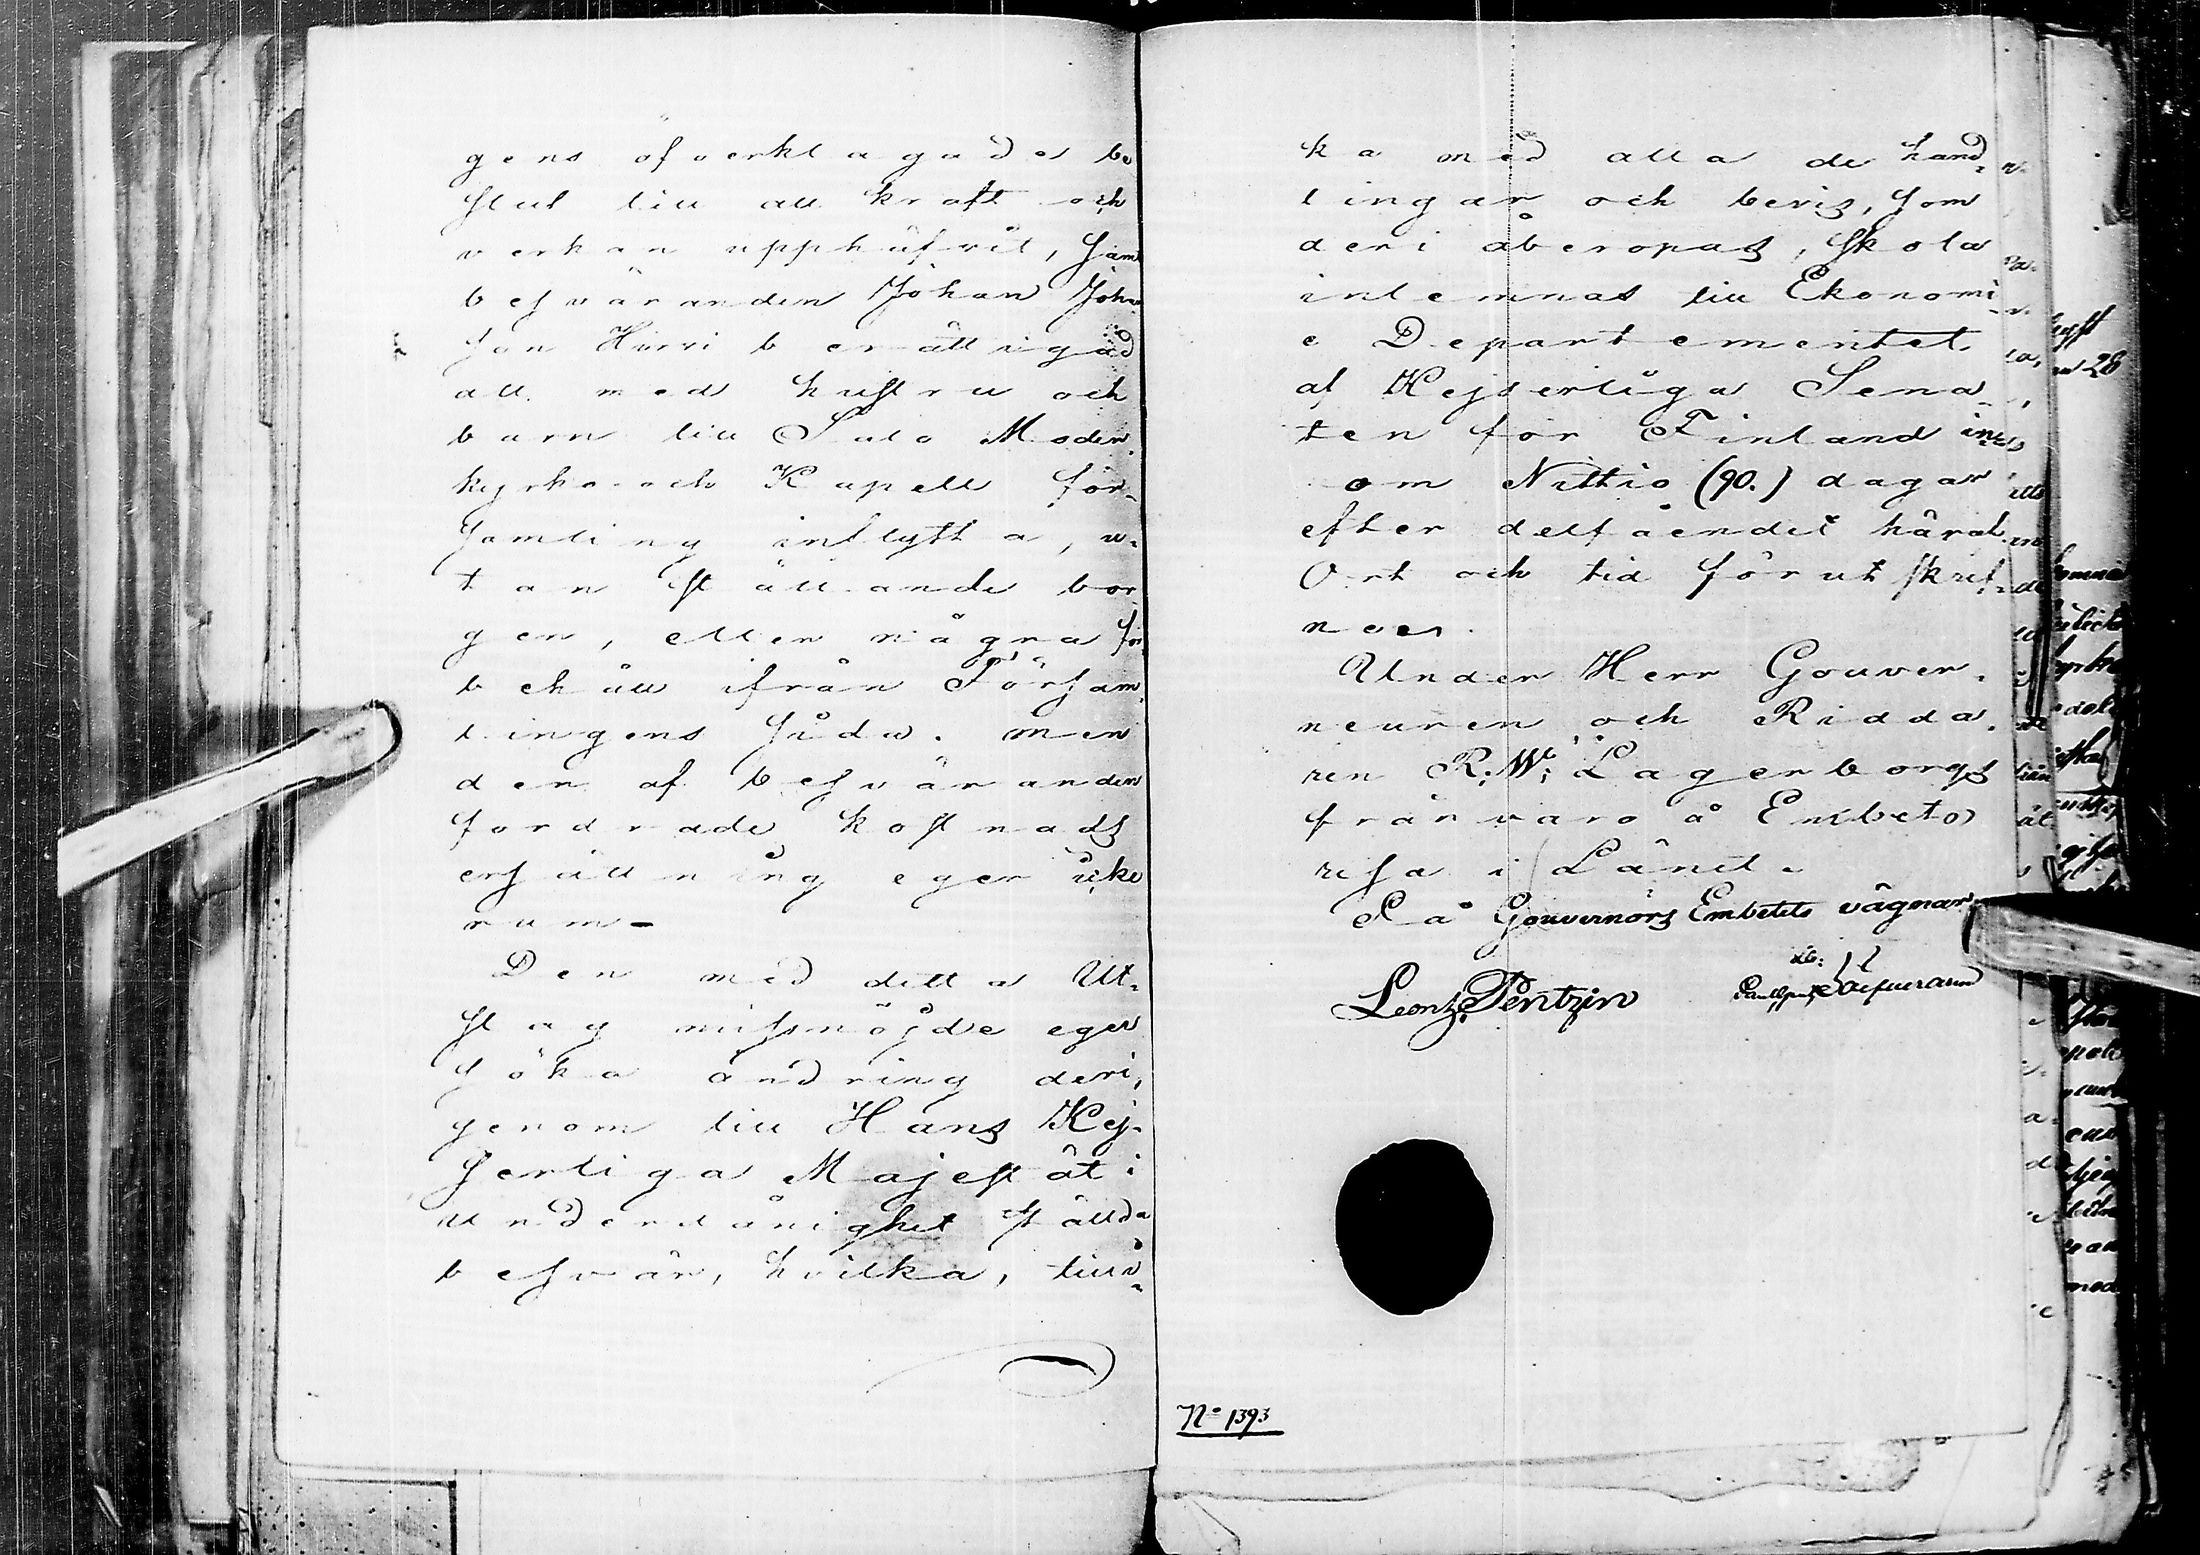 gens öfverklagade be
slut till all kraft och
verkan upphäfvit, samt
besväranden Johan Johan
son Hurri berättigad
att med hustru och
barn till Salo Moder,
kyrko och Kapell för-
samling inflytta, u-
tan ställande bor
gen, eller några för
behåll ifrån Församl
lingens sida. men
den af besväranden
fordrade kostnads
ersättning eger icke
rum-
Den med detta Ut-
slag missnöjde eger
söka ändring deri,
genom till Hans Kej-
serliga Majestät i
underdånighet ställda
besvär, hvilka, till i-
ka med alla de hand-
lingar och bevis, som
deri åberopas, skola
inlemnas till Ekonomi-
e Departementet
af Kejserliga Sena-
ten för Finland in-
om Nittio (90.) dagar
efter delfåendet häraf.
Ort och tid förut skref-
ne.
Under Herr Gouver-
neuren och Ridda-
ren R: W: Lagerborgs
frånvaro å Embets
resa i Länet.
På Gouvernörs Embetets vägnar.
Leon: Pentzin
No 1393